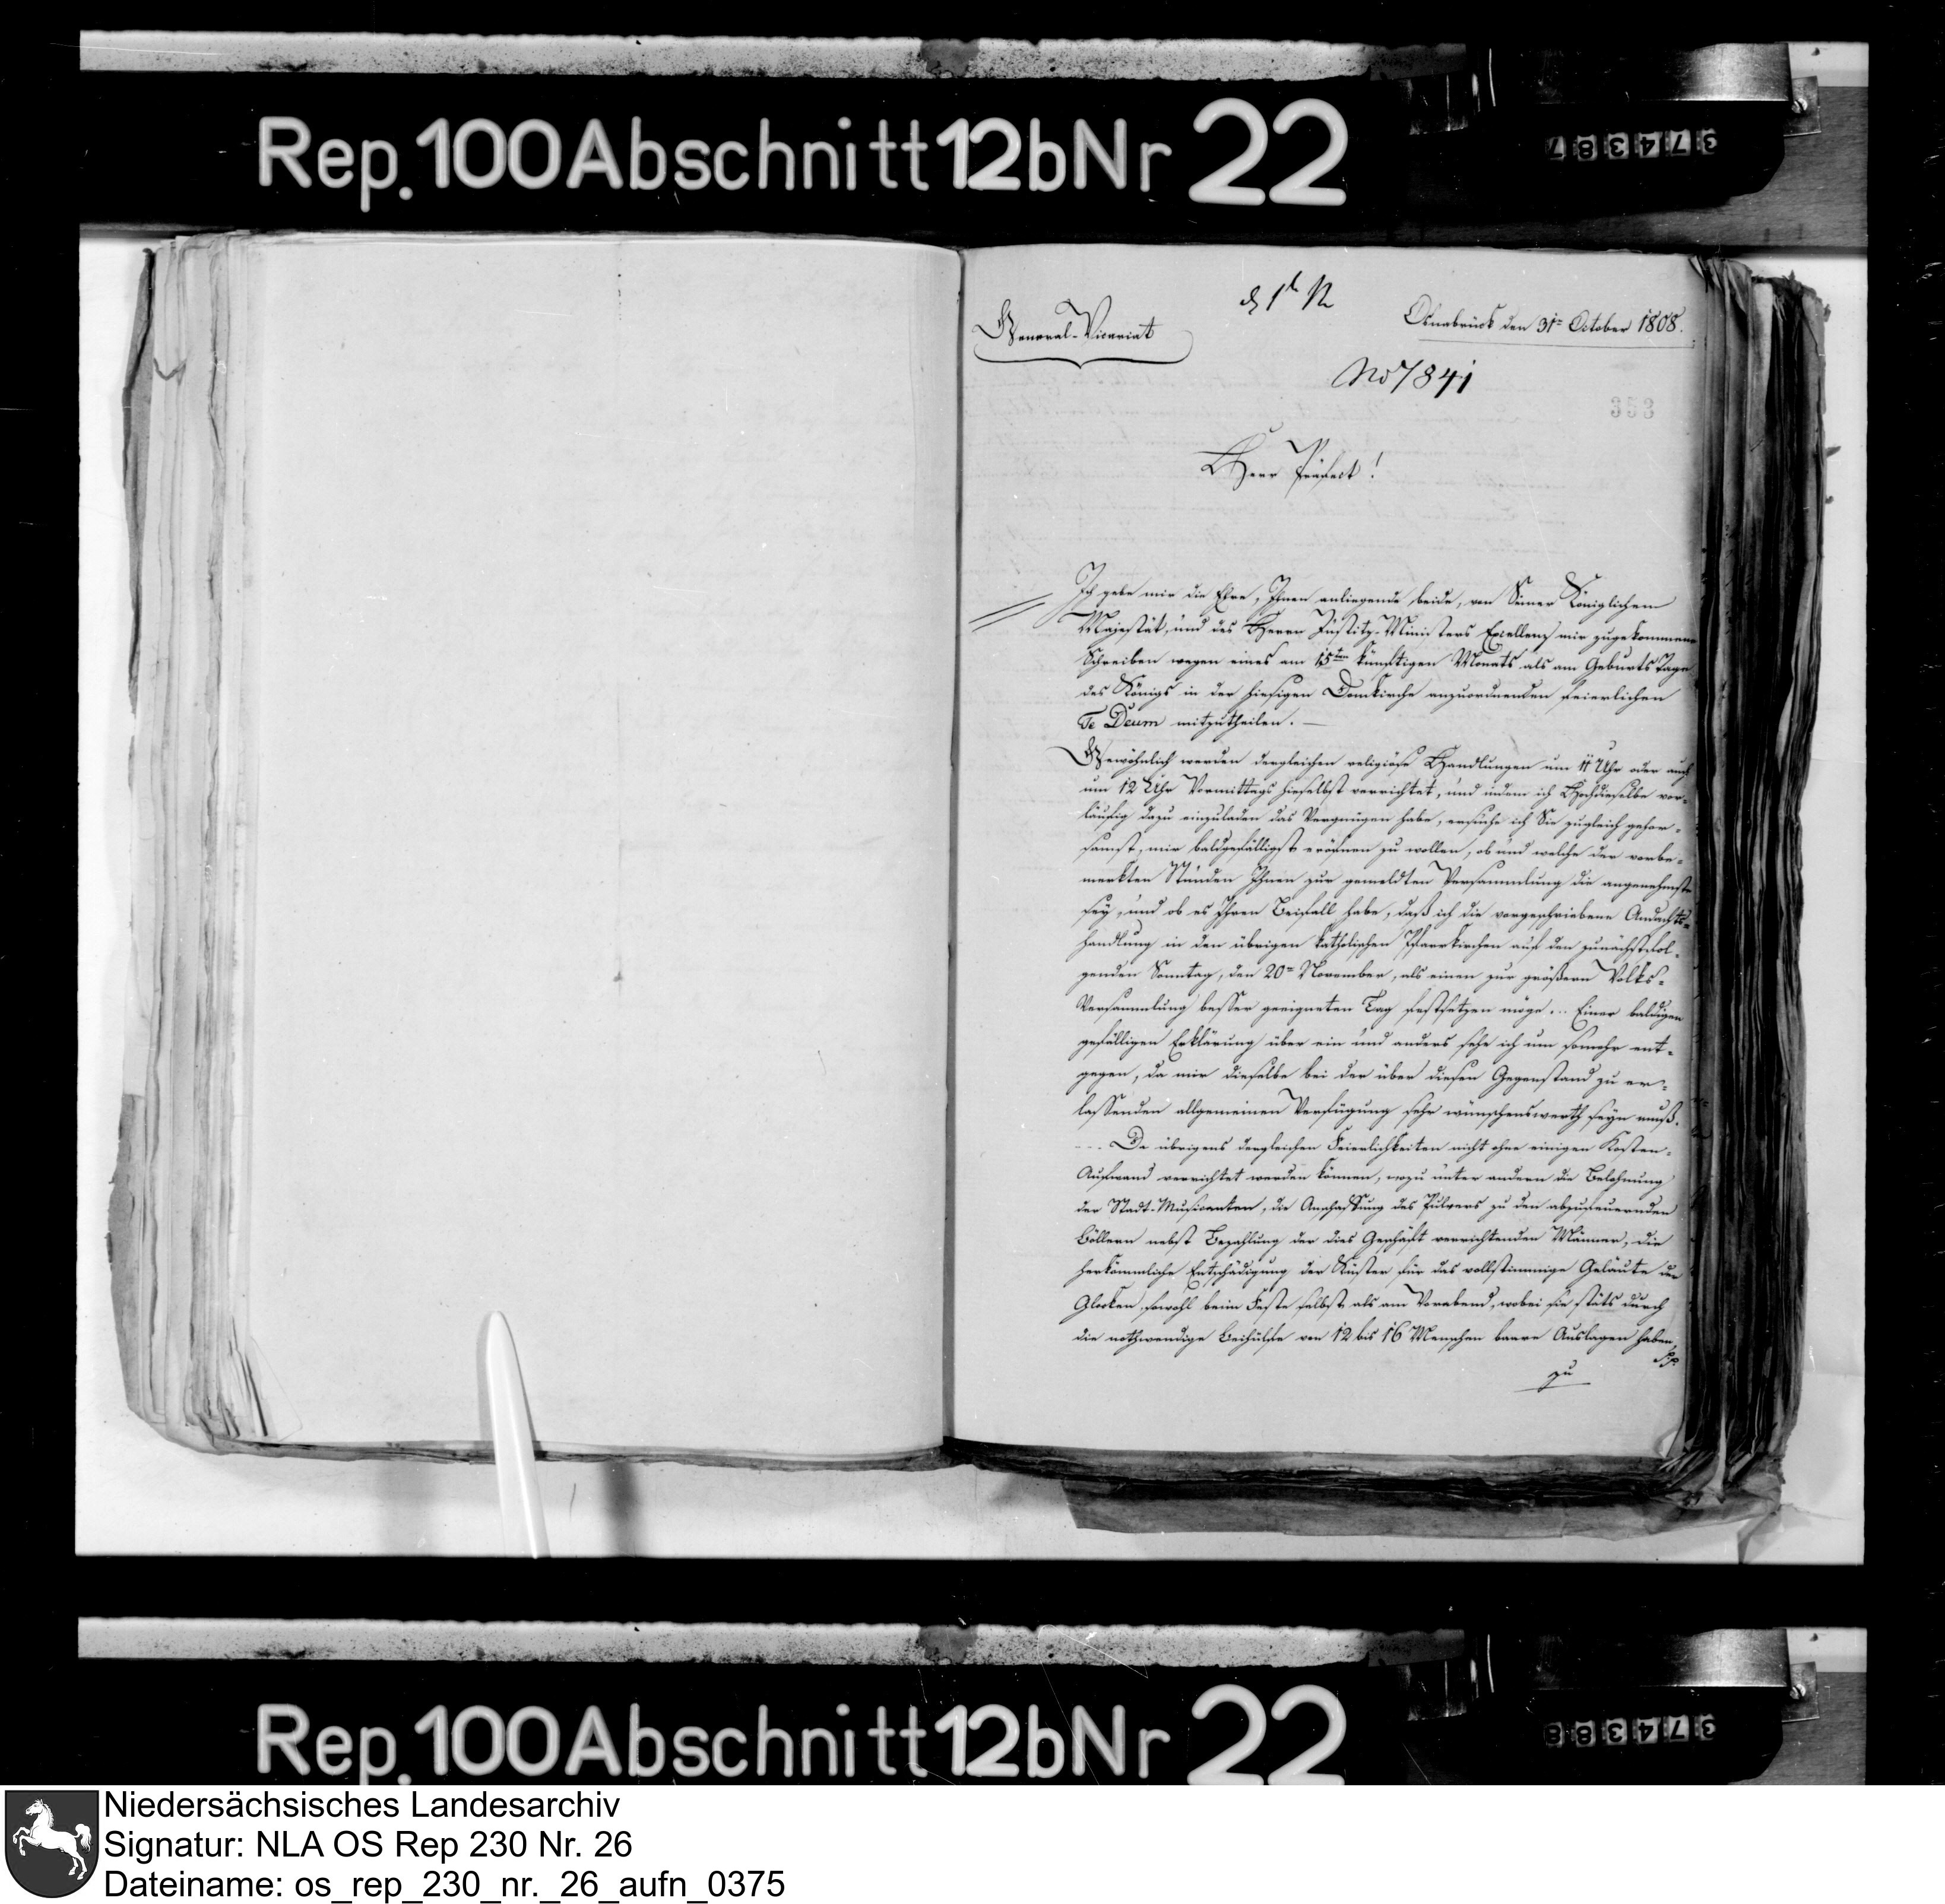 Rep. 100 Abschnitt 12b Nr 22
374387
General-Vicariat
Osnabrück den 31n October 1808.
No 7841
353
Herr Präfect!
Ich gebe mir die Ehre, Ihnen anliegende beide, von Seiner Königlichem
Majestät, und des Herrn Justitz-Ministers Excellenz mir zugekommene
Schreiben wegen eines am 15ten künftigen Monats als am Geburts Tage
des Königs in der hiesigen Domkirche anzuordnenden feierlichen
Te Deum mitzutheilen. —
Gewöhnlich werden dergleichen religiöse Handlungen um 11 Uhr oder auch
um 12 Uhr Vormittags hieselbst verrichtet, und indem ich Hochdieselbe vor-
läufig dazu einzuladen das Vergnügen habe, ersuche ich Sie zugleich gehor-
samst, mir baldgefälligst eröfnen zu wollen, ob und welche der vorbe-
merkten Stunden Ihnen zur gemeldten Versammlung die angenehmste
sey, und ob es Ihren Beifall habe, daß ich die vorgeschriebene Andachts-
handlung in den übrigen katholischen Pfarrkirchen auf den zunächstfol-
genden Sonntag, den 20n November, als einen zur größern Volks-
Versammlung besser geeigneten Tag festsetzen möge... Einer baldigen
gefälligen Erklärung über ein und anders sehe ich um somehr ent-
gegen, da mir dieselbe bei der über diesen Gegenstand zu er-
lassenden allgemeinen Verfügung sehr wünschenswerth seyn muß.
--- Da übrigens dergleichen Feierlichkeiten nicht ohne einigen Kosten-
Aufwand verrichtet werden können, wozu unter andern die Belohnung
der Stadt-Musicanten, die Anschaffung des Pulvers zu den abzufeuernden
Böllern nebst Bezahlung der dies Geschäft verrichtenden Männer, die
herkömmliche Entschädigung der Küster für das vollstimmige Geläute der
Glocken, sowohl beim Feste selbst als am Vorabend, wobei sie stäts durch
die nothwendige Beihülfe von 12 bis 16 Menschen baare Auslagen haben
zu
Rep. 100 Abschnitt 12b Nr 22
374388
Niedersächsisches Landesarchiv
Signatur: NLA OS Rep 230 Nr. 26
Dateiname: os_rep_230_nr._26_aufn_0375